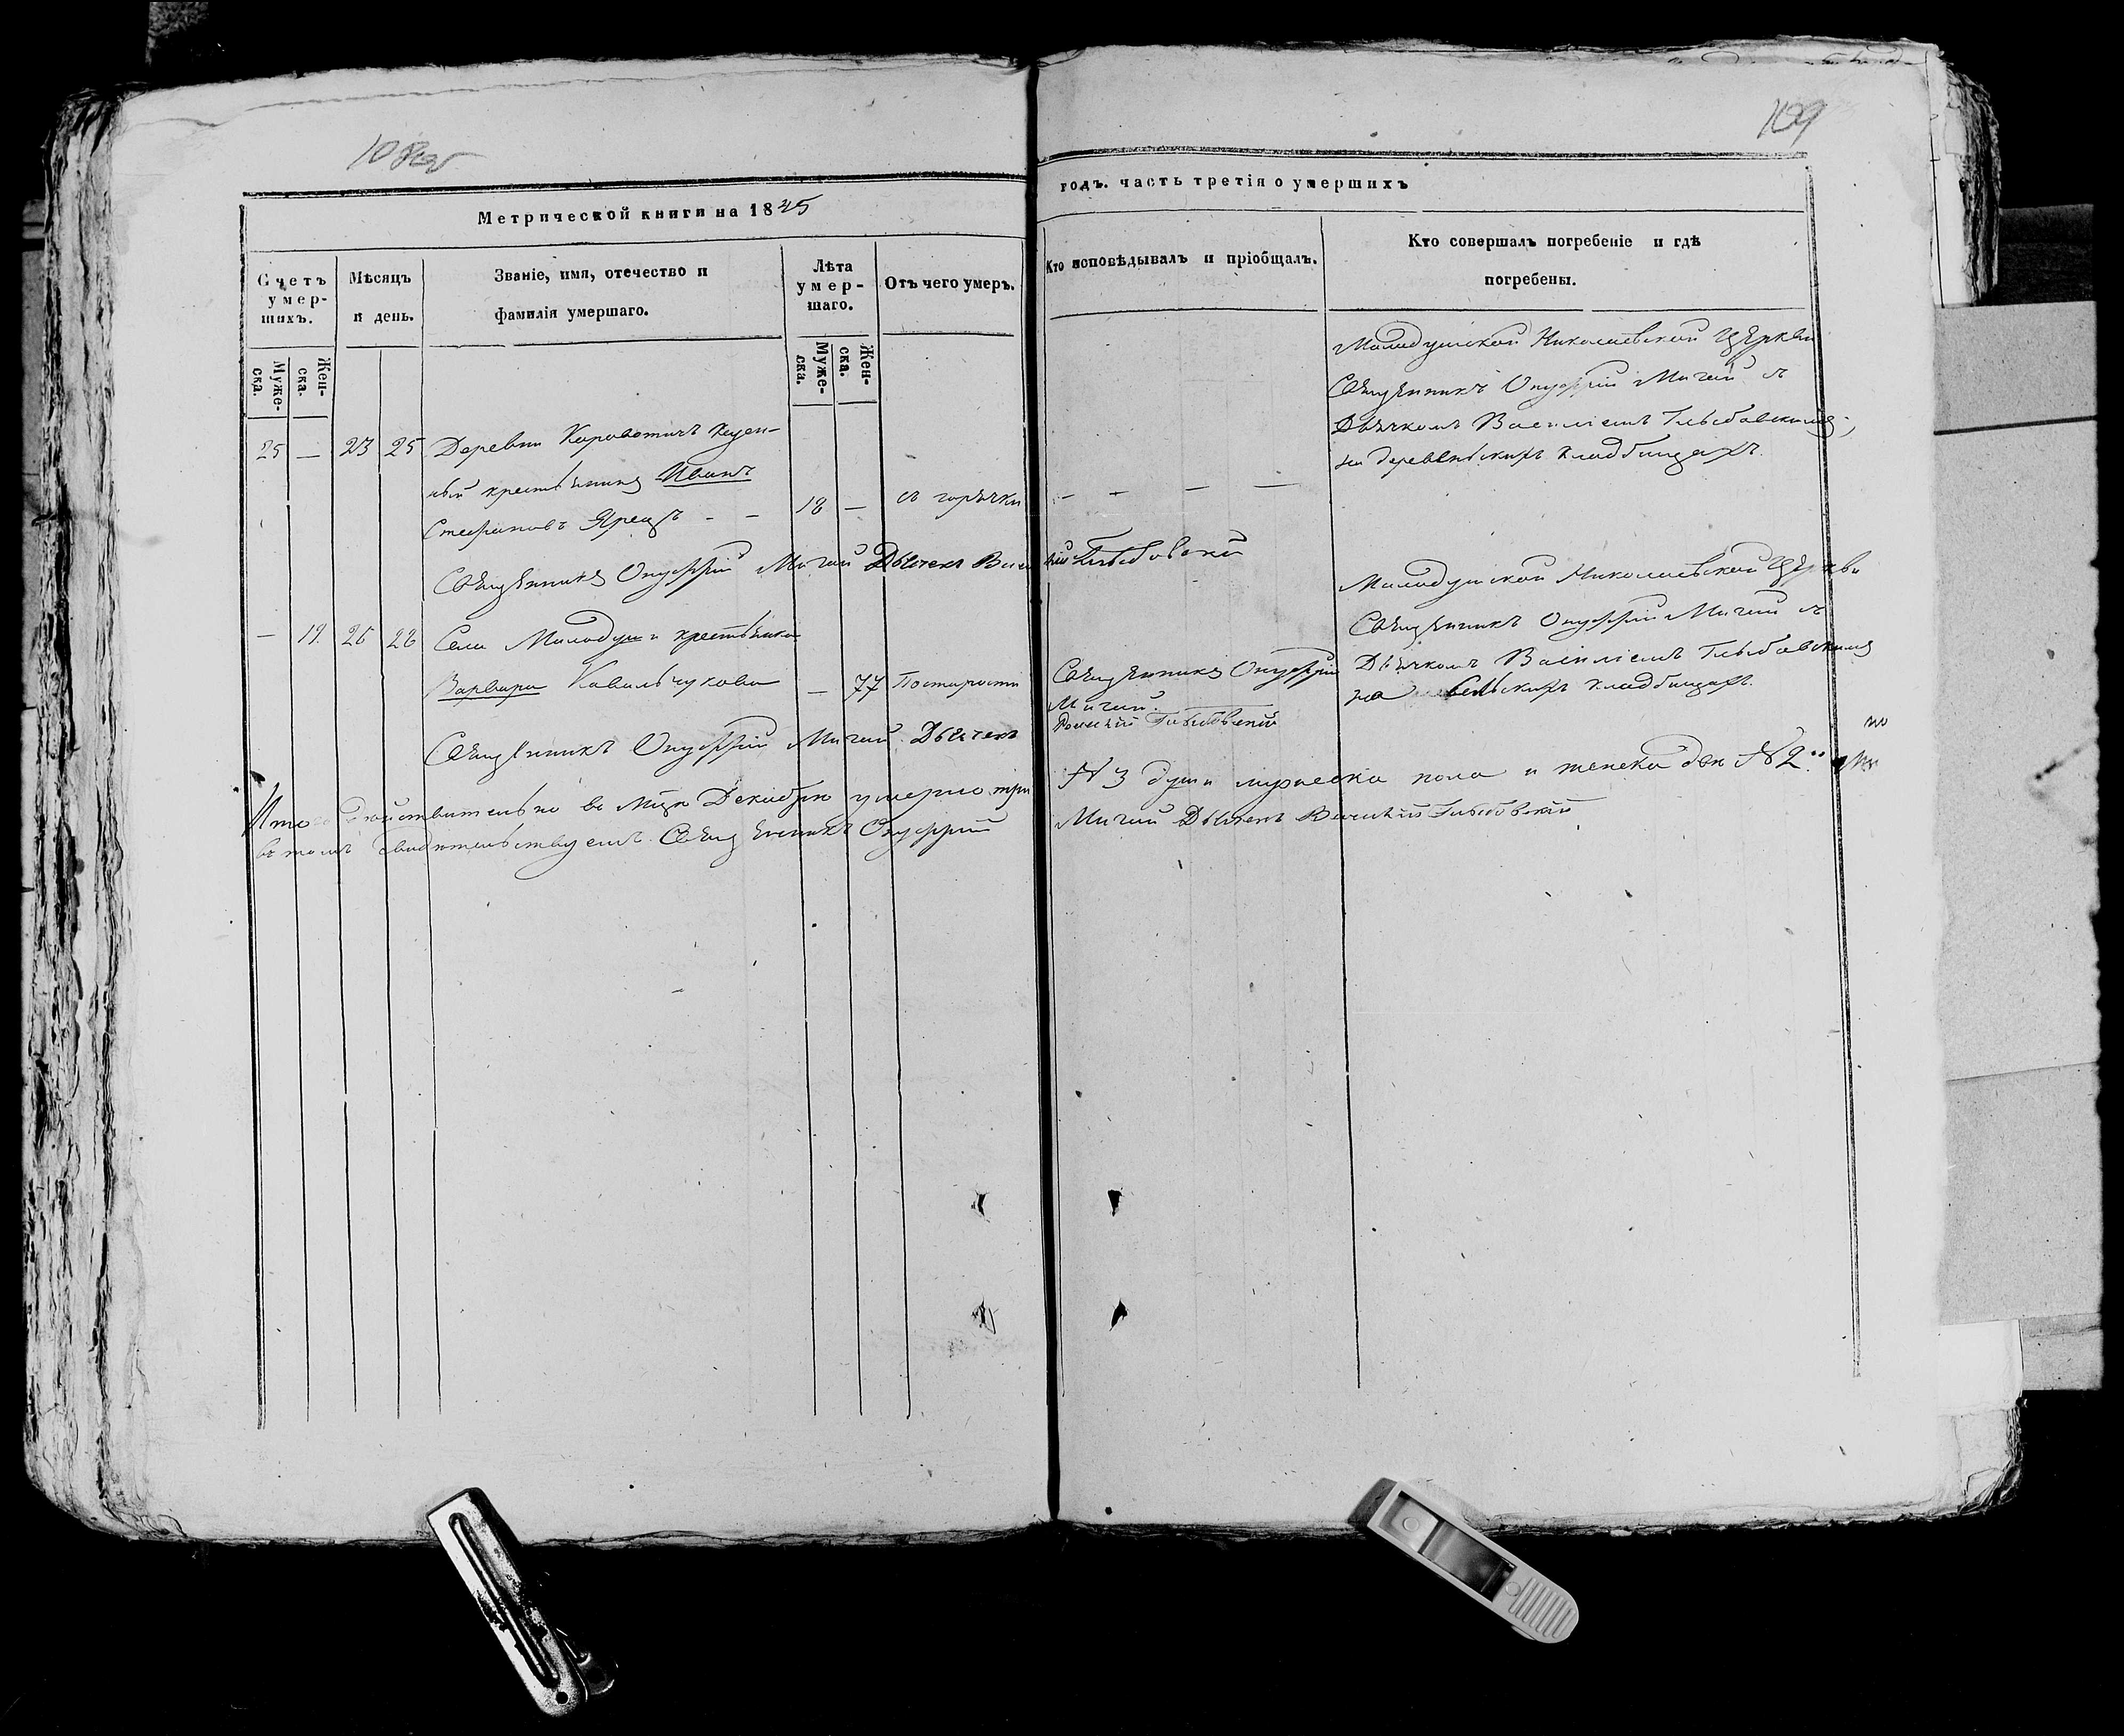 108об
109
Метрической книги на 1845
годъ. часть третія о умершихъ
Счетъ умер-шихъ.
Мѣсяцъ и день.
Званіе, имя, отечество и фамилія умершаго.
Лѣта умер-шаго.
Отъ чего умеръ.
Кто исповѣдывалъ и пріобщалъ.
Кто совершалъ погребеніе и гдѣ погребены.
Муже-ска.
Жен-ска.
Муже-ска.
Жен-ска.
25 — 23 25 Деревни Короватичъ казен-
ный крестьянинъ Иванъ
Стефановъ Ярецъ - - 18 — съ горячки — — — —
Молодушской Николаевской Церкви
Священникъ Онуфрій Мигай съ
Дьячкомъ Василіемъ Глыбовскимъ;
на деревенскихъ кладбищахъ.
Священникъ Онуфрій Мигай Дьячекъ Василій Глыбовскій
— 19. 26 28 Села Молодуши крестьянка
Варвара Ковальчукова — 77 Постарости
Священникъ Онуфрій
Мигай.
Молодушской Николаевской Церкви
Священникъ Онуфрій Мигай съ
Дьячкомъ Василіемъ Глыбовскимъ
на сельскихъ кладбищахъ.
Священникъ Онуфрій Мигай. Дьячекъ
Василій Глыбовскій
Итого действительно въ мцѣ Декабрѣ умерло три
№ 3 души мужеска пола и женска двѣ № 2.
въ томъ свидѣтельствуемъ. Священникъ Онуфрій
Мигай Дьячекъ Василій Глыбовскій